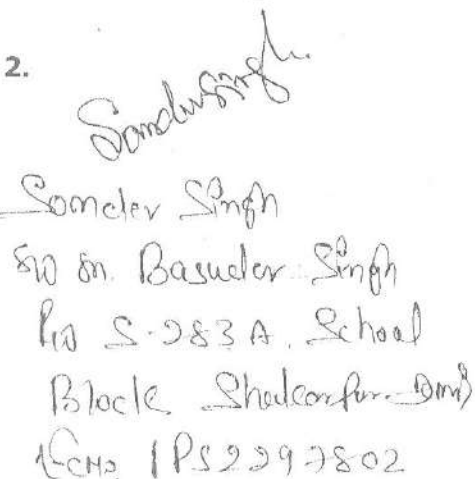 2.
Somdev Singh
Somdev Singh
S/o Sh. Basudev Singh
R/o S-283A, School
Block Shakarpur Delhi
1PS2297802